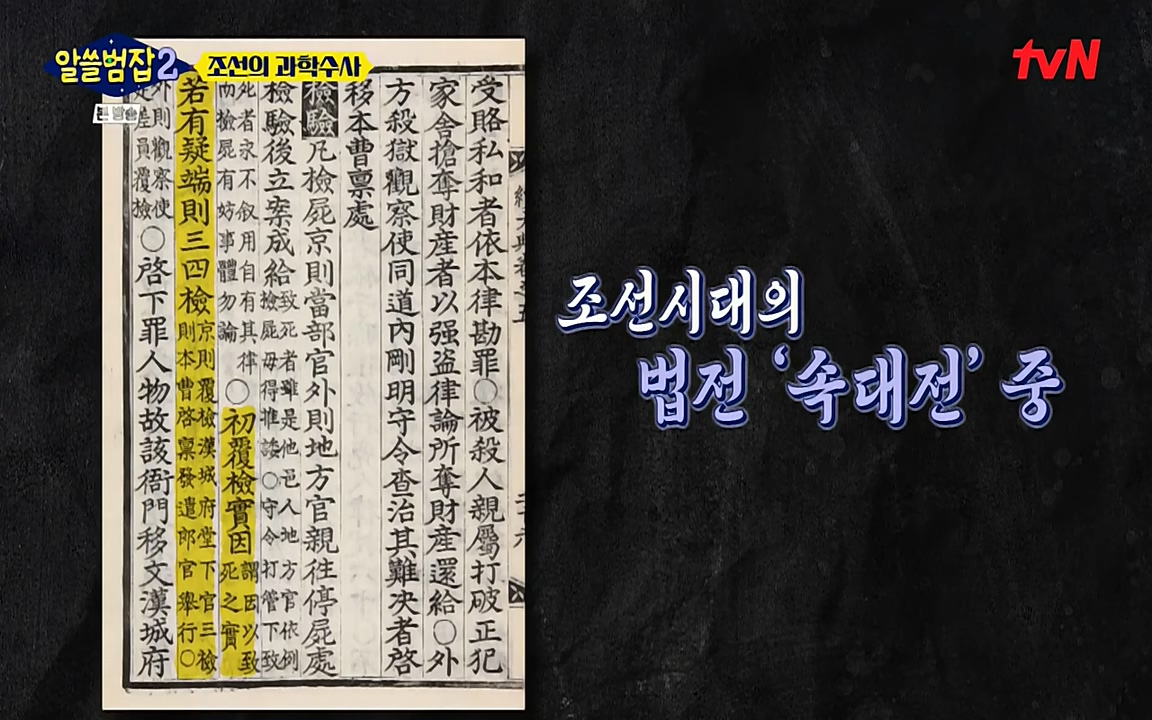 알쓸범잡2
조선의 과학수사
본 방송
tvN
受賂私和者依本律勘罪○被殺人親屬打破正犯
家舍搶奪財産者以强盜律論所奪財産還給○外
方殺獄觀察使同道內剛明守令查治其難决者啓
移本曹稟處
檢驗 凡檢屍京則當部官外則地方官親往停屍處
檢驗後立案成給 致死者雖是他邑人地方官依例
檢屍毋得推諉○守令打管下致
死者永不叙用自有其律
而檢屍有妨事體勿論
○初覆檢實因 謂因以致
死之實
若有疑端則三四檢 京則覆檢漢城府堂下官三檢
則本曹啓稟發遣郞官擧行○
外則觀察使
定差員覆檢
○啓下罪人物故該衙門移文漢城府
조선시대의
법전 ‘속대전’ 중